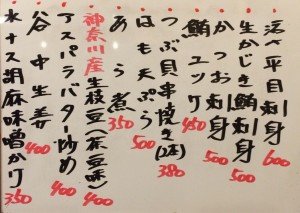 活〆平目刺身 600
生かじき鮪刺身 500
かつお刺身 500
鮪ユッケ 450
つぶ貝串焼き(2本) 380
はも天ぷら 500
あら煮 350
神奈川産生枝豆(茶豆味) 400
アスパラバター炒め 400
谷中生姜 400
水ナス胡麻味噌かけ 350